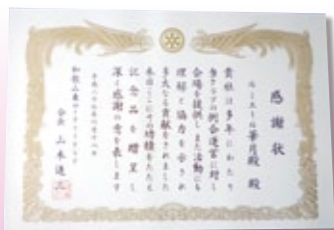 感謝状
華月殿 殿
貴社は多年にわたり
当クラブの例会運営に対し
会場を提供しまた活動にも
理解と協力を示され
多大なる貢献をされました
本日ここにその功績をたたえ
記念品を贈呈し
深く感謝の意を表します
和歌山東ロータリークラブ
会長